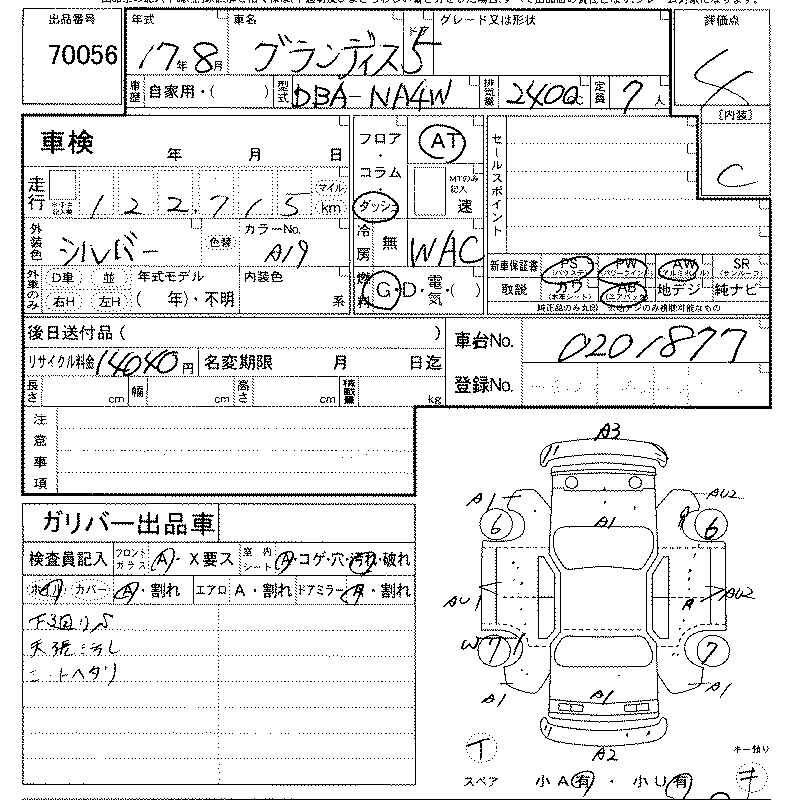 出品番号 年式 車名 ドア グレード又は形状 評価点
70056 17年8月 グランディス 5 4
車歴 自家用・( ) 型式 DBA-NA4W 排気量 2400cc 定員 7人
〔内装〕
C
車検 年 月 日
フロア・コラム・ダッシュ AT
MTのみ記入 速
セールスポイント
走行 122,715 マイル km
外装色 シルバー 色替 カラーNo. A19
冷房 無 WAC
新車保証書 PS(パワステ) PW(パワーウインド) AW(アルミホイル) SR(サンルーフ)
取説 カワ(本革シート) AB(エアバッグ) 地デジ 純ナビ
外車のみ D車 並 右H 左H 年式モデル ( 年)・不明 内装色 系
燃料 G・D・電気・( )
後日送付品 ( )
車台No. 0201877
リサイクル料金 14040円 名変期限 月 日迄
登録No.
長さ cm 幅 cm 高さ cm 積載量 kg
注意事項
ガリバー出品車
検査員記入 フロントガラス A・X要ス 室内シート A・コゲ・穴・汚れ・破れ
ホイル カバー A・割れ エアロ A・割れ ドアミラー A・割れ
下3回りS
天張ヨゴレ
シートヘタリ
A3
A1 AU2
6 A1 6
AU1 A AU2
W7 7
A1 A1 A1
A2
T
スペア 小A有・小U有
キー預り
キ